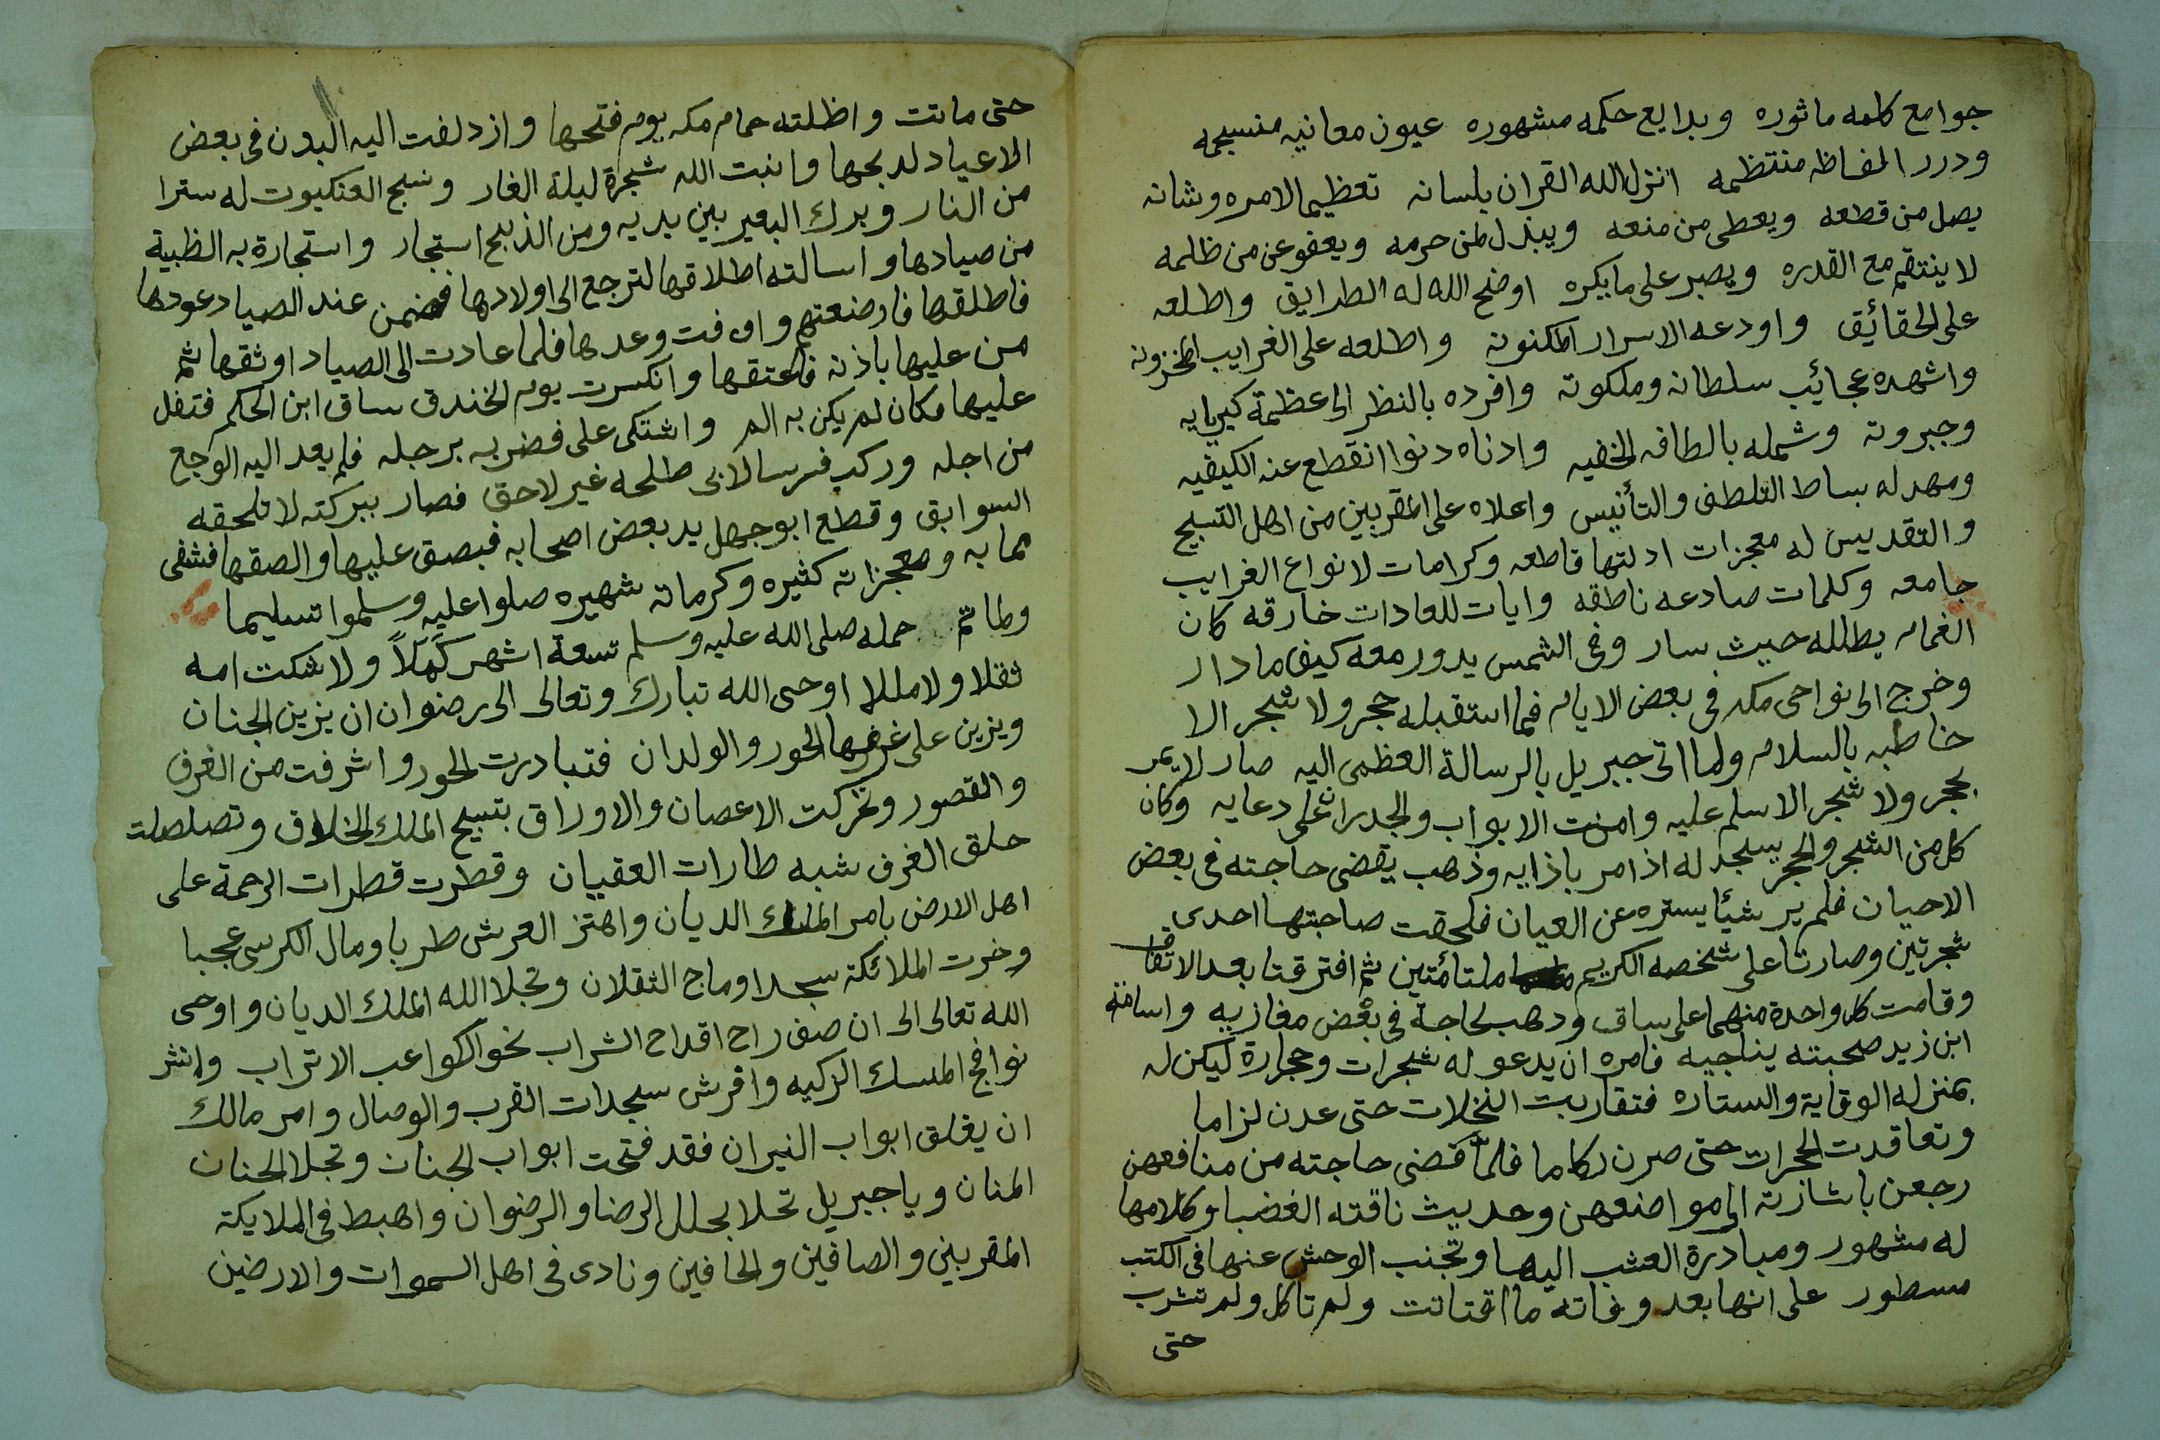 جوامع كلمه ماثوره وبدايع حكمه مشهوره عيون معانيه منسجمه
ودرر الفاظه منتظمه انزل الله القران بلسانه تعظيما لامره وشانه
يصل من قطعه ويعطى من منعه ويبذل لمن حرمه ويعفو عن من ظلمه
لا ينتقم مع القدره ويصبر على ما يكره اوضح الله له الطرايق واطلعه
على الحقائيق واودعه الاسرار المكنونه واطلعه على الغرايب المخزونه
واشهده عجائيب سلطانه وملكوته وافرده بالنظر الى عظمة كبريايه
وجبروته وشمله بالطافه الخفيه وادناه دنوا انقطع عنه الكيفيه
ومهد له بساط التلطف والتأنيس واعلاه على المقربين من اهل التسبيح
والتقديس له معجزات ادلتها قاطعه وكرامات لانواع الغرايب
جامعه وكلمات صادعه ناطقه وايات للعادات خارقه كان
الغمام يظلله حيث سار وفى الشمس يدور معه كيف ما دار
وخرج الى نواحى مكه فى بعض الايام فما استقبله حجر ولا شجر الا
خاطبه بالسلام ولما اتى جبريل بالرسالة العظمى اليه صار لا يمر
بحجر ولا شجر الا سلم عليه وامنت الابواب والجدران على دعايه وكان
كل من الشجر والحجر يسجد له اذا مر باذايه وذهب يقضى حاجته فى بعض
الاحيان فلم ير شيئا يستره عن العيان فلحقت صاحبتها احدى
شجرتين وصارتا على شخصه الكريم ملتائمتين ثم افترقتا بعد الاتفاق
وقامت كل واحدة منهما على ساق ودهب لحاجة فى بعض مغازيه واسامة
ابن زيد صحبته يناجيه فامره ان يدعو له شجرات وحجارة ليكن له
بمنزله الوقاية والستاره فتقاربت النخلات حتى عدن لزاما
وتعاقدت الحجرات حتى صرن ركاما فلما قضى حاجته من منافعهن
رجعن باشارته الى مواضعهن وحديث ناقته الغضبا وكلامها
له مشهور ومبادرة العشب اليها وتجنب الوحش عنها فى الكتب
مسطور على انها بعد وفاته ما اقتاتت ولم تاكل ولم تشرب
حتى
حتى ماتت واظلته حمام مكه يوم فتحها وازدلفت اليه البدن فى بعض
الاعياد لدبحها وانبت الله شجرة ليلة الغار ونسج العنكبوت له سترا
من النار وبرك البعير بين يديه ومن الذبح استجار واستجارة به الظبية
من صيادها واسالته اطلاقها لترجع الى اولادها فضمن عند الصياد عودها
فاطلقها فارضعتهم واوفت وعدها فلما عادت الى الصياد اوثقها ثم
من عليها باذنه فاعتقها وانكسرت يوم الخندق ساق ابن الحكم فتفل
عليها مكان لم يكن به الم واشتكى على فضربه برجله فلم يعد اليه الوجع
من اجله وركب فرسا لابى طلحه غير لاحق فصار ببركته لا تلحقه
السوابق وقطع ابو جهل يد بعض اصحابه فبصق عليها والصقها فشفى
مما به ومعجزاته كثيره وكرماته شهيره صلوا عليه وسلموا تسليما
ولما تم حمله صلى الله عليه وسلم تسعة اشهر كمّلاً ولا شكت امه
ثقلا ولا مللا اوحى الله تبارك وتعالى الى رضوان ان يزين الجنان
ويزين على غرفها الحور والولدان فتبادرت الحور واشرفت من الغرف
والقصور وتحركت الاعصان والاوراق بتسبيح الملك الخلاق وتصلصلت
حلق الغرف شبه طارات العقيان وقطرت قطرات الرحمة على
اهل الارض بامر الملك الديان واهتز العرش طربا ومال الكرسى عجبا
وخرت الملائكة سجدا وماج الثقلان وتجلا الله الملك الديان واوحى
الله تعالى الى ان صف راح اقداح الشراب نحو الكواعب الاتراب وانثر
نوافح المسك الزكيه وافرش سجدات القرب والوصال وامر مالك
ان يغلق ابواب النيران فقد فتحت ابواب الجنان وتجلا الحنان
المنان ويا جبريل تحلا بحلل الرضا والرضوان واهبط فى الملايكة
المقربين والصافين والحافين ونادى فى اهل السموات والارضين